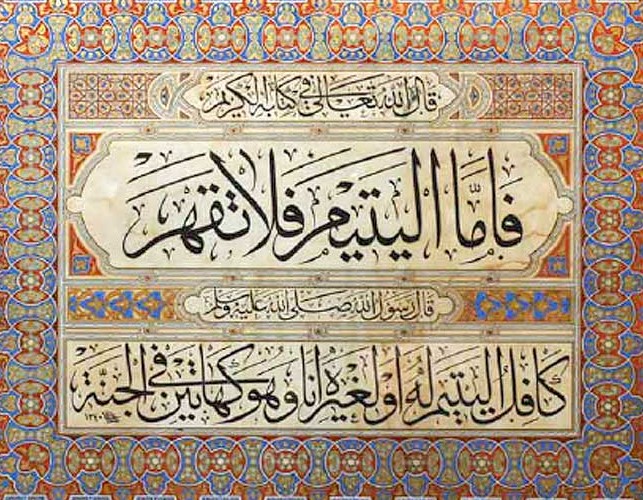 قال الله تعالى في كتابه الكريم
فَأَمَّا الْيَتِيمَ فَلَا تَقْهَرْ
قال رسول الله صلى الله عليه وسلم
كافل اليتيم له أو لغيره أنا وهو كهاتين في الجنة
١٣٤٠